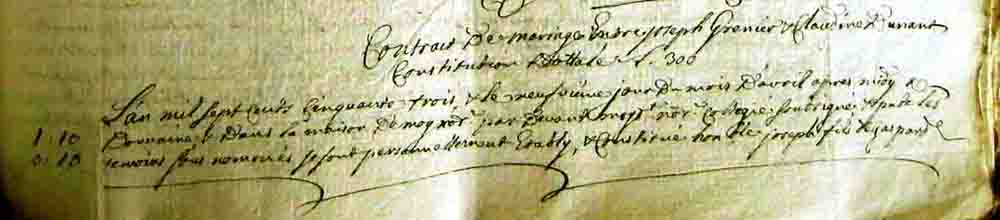 Contrait De mariage Entre joseph Grenier & Claudine Dunant
Constitution Dottale L. 300
L'an mil sept cents cinquante trois, & le neufvieme jour Du mois D'avril apres midy a
1:10 Douvaine, & Dans la maison De moy nore par Devant moy dt nore collégié soubsigné & prnts les
0:10 temoins sous nommés se sont personnellement Etably, & Constitué honble joseph fils de gaspard